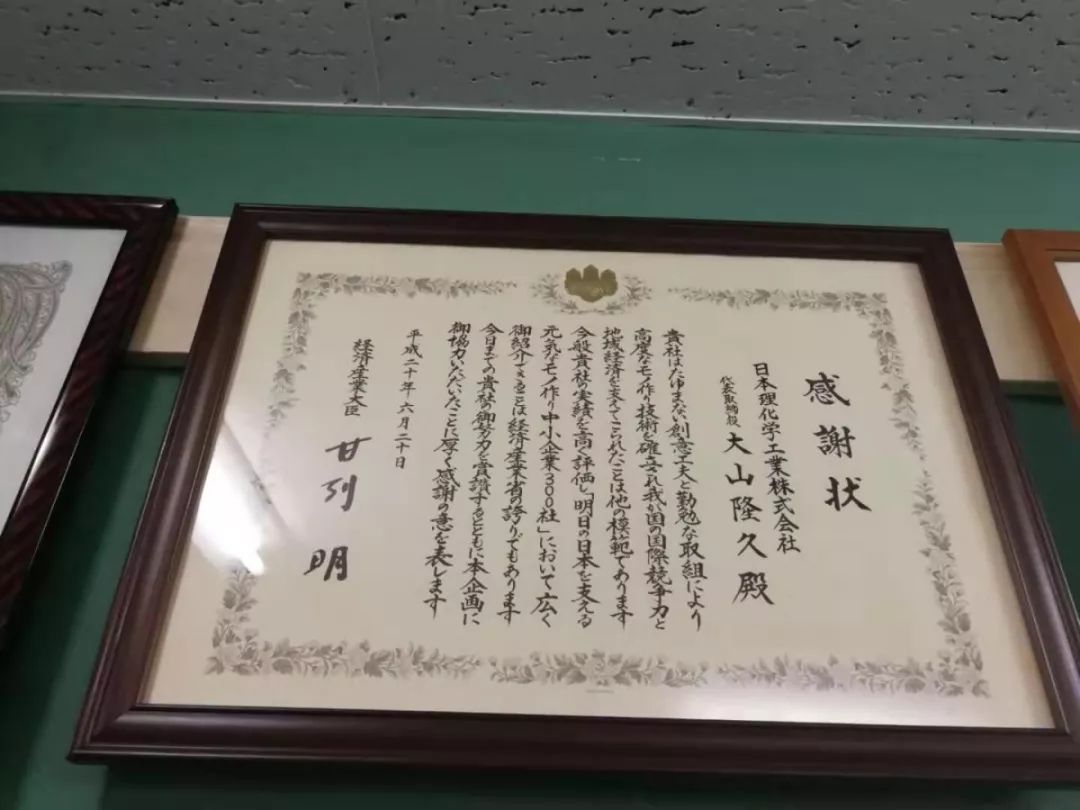 感謝状
日本理化学工業株式会社
代表取締役 大山隆久殿
貴社はたゆまない創意工夫と勤勉な取組により
高度なモノ作り技術を確立され我が国の国際競争力と
地域経済を支えてこられたことは他の模範であります
今般貴社の実績を高く評価し「明日の日本を支える
元気なモノ作り中小企業300社」において広く
御紹介できることは経済産業省の誇りでもあります
今日までの貴社の御努力を賞讃するとともに本企画に
御協力いただいたことに厚く感謝の意を表します
平成二十年六月二十日
経済産業大臣 甘利 明